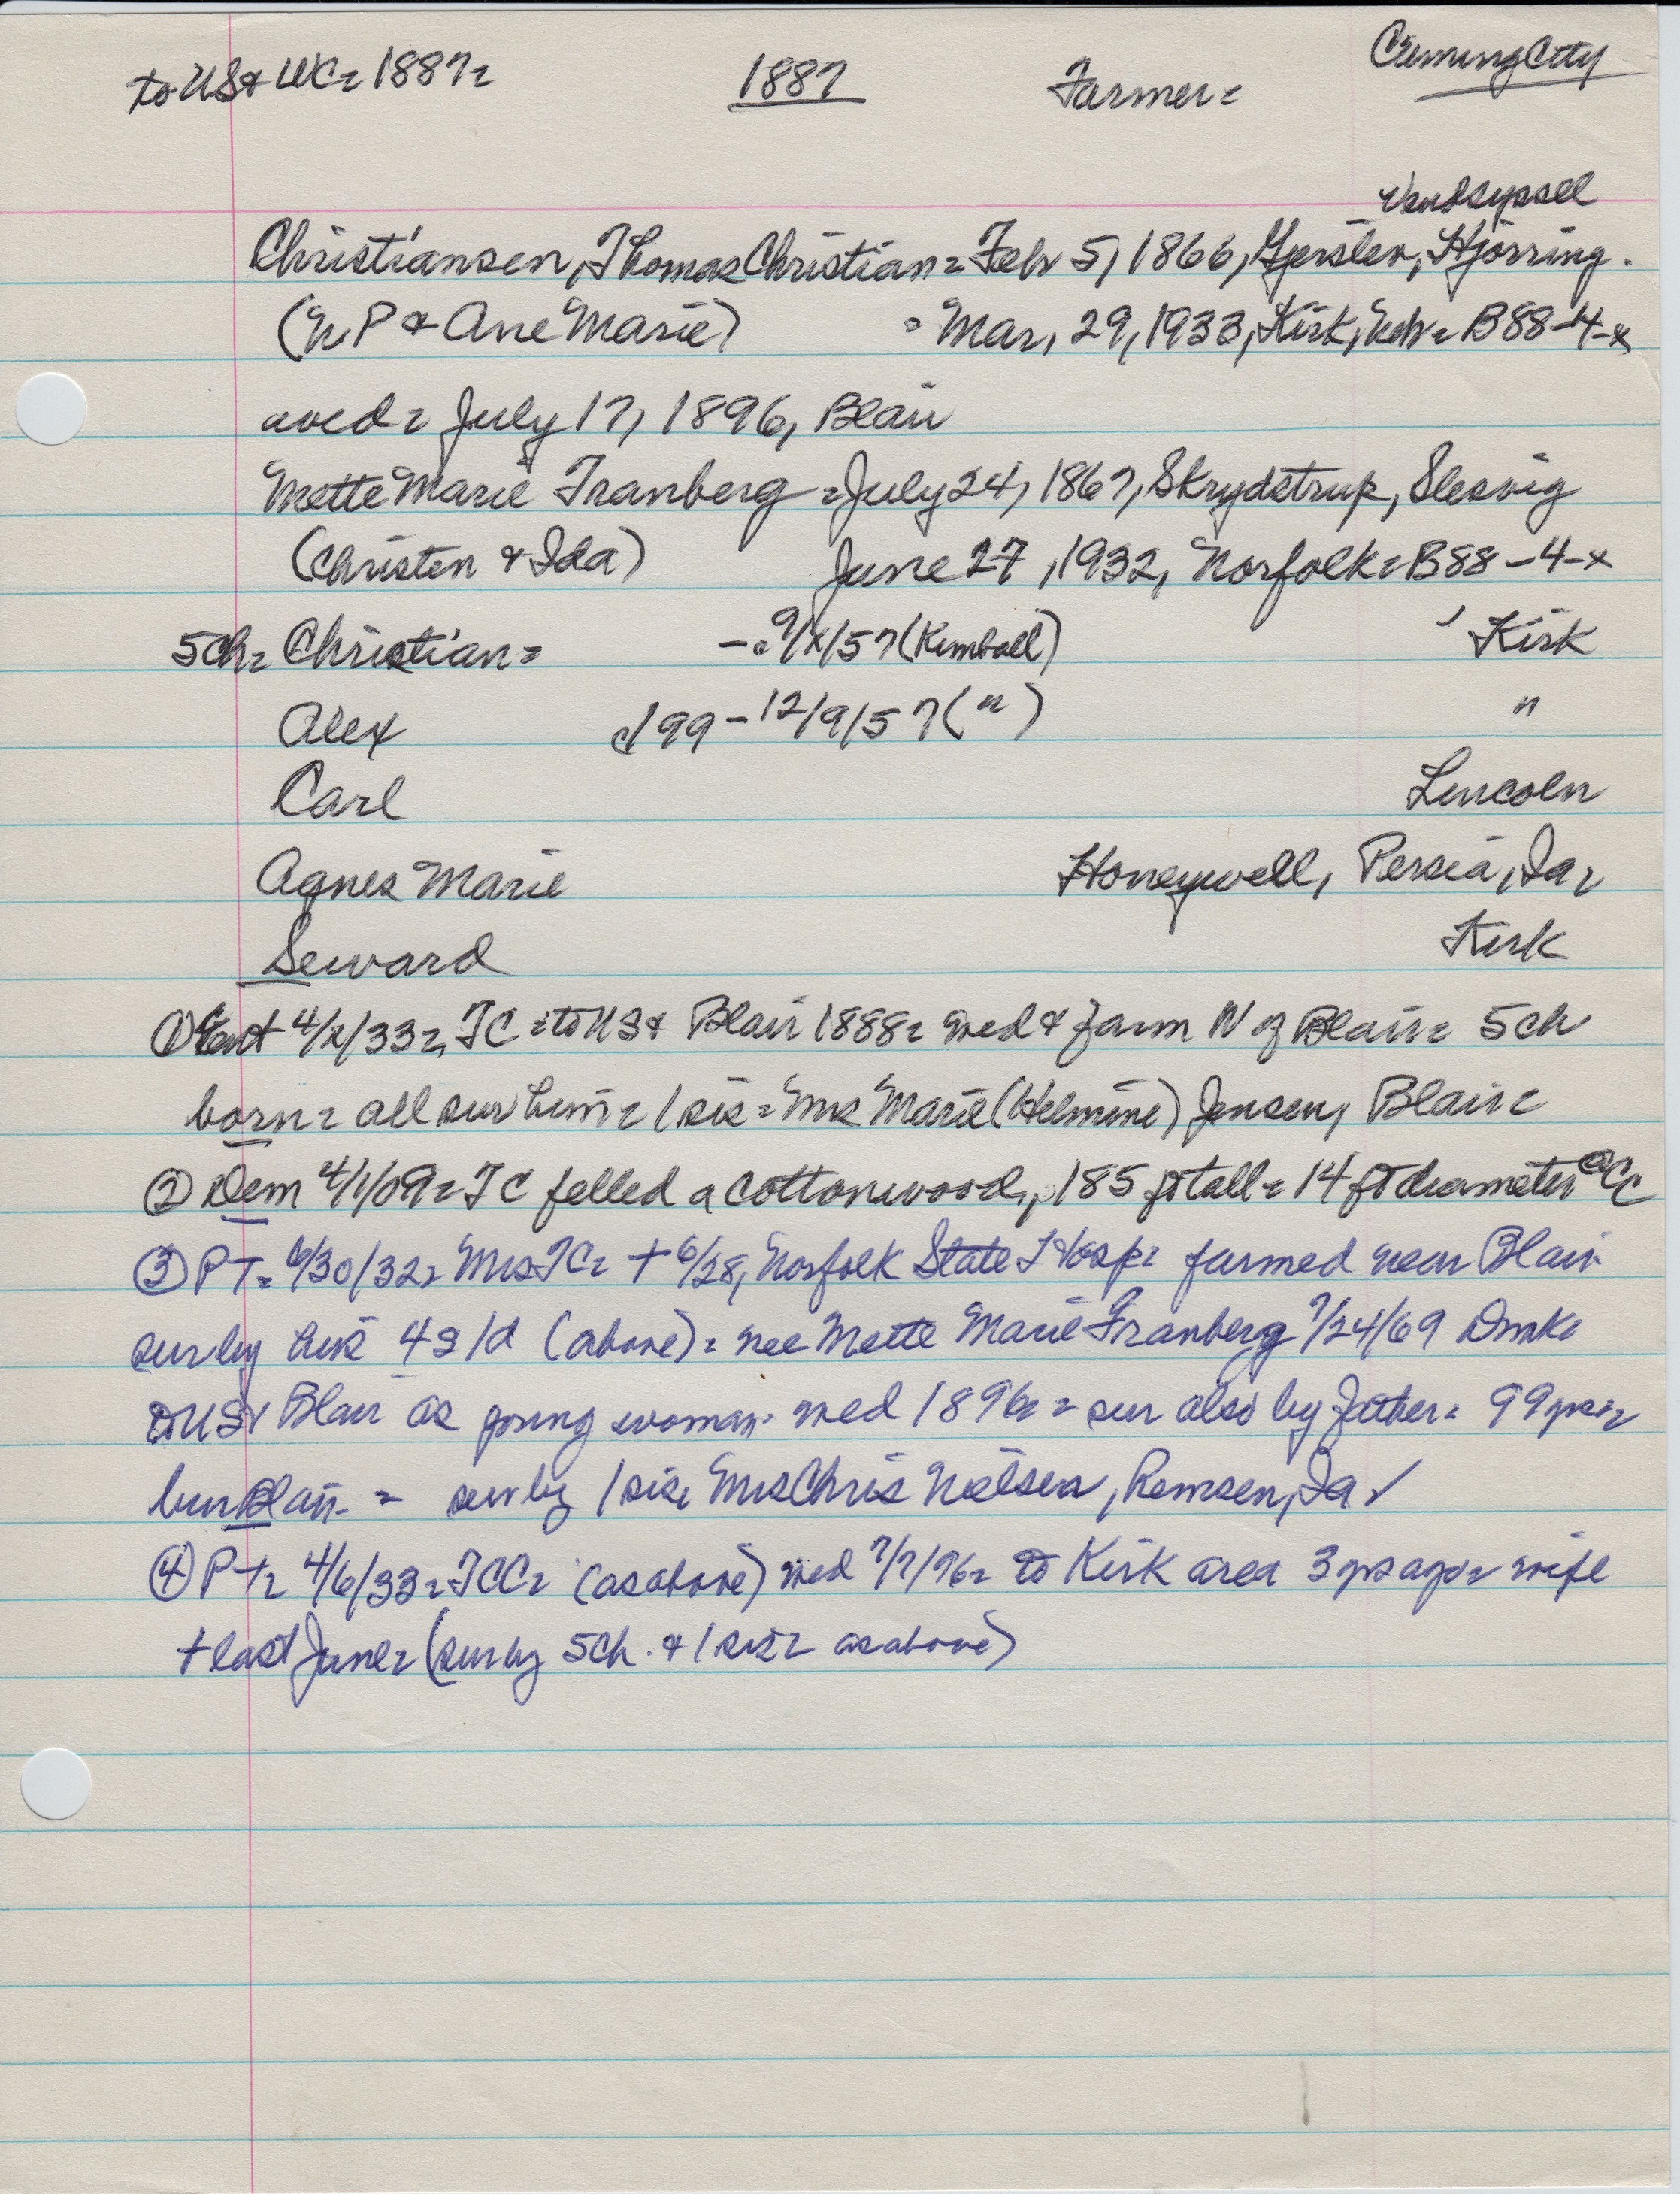 to US & WC = 1887 =
1887
Farmer =
Cuming City
Vendsyssel
Christiansen, Thomas Christian = Feb 5, 1866, Gjerslev, Hjörring.
(N.P & Ane Marie) = Mar, 29, 1933, Kirk, Neb = B88-4-x
wed = July 17, 1896, Blair
Mette Marie Tranberg = July 24, 1867, Skrydstrup, Slesvig
(Christen & Ida) June 27, 1932, Norfolk = B88-4-x
5ch = Christian = -. 9/x/57 (Kimball) Kirk
Alex c/99 - 12/9/57 (") "
Carl Lincoln
Agnes Marie Honeywell, Persia, Ia,
Seward Kirk
① 4/x/33 =, TC = to US & Blair 1888 = wed & farm N of Blair = 5ch
born = all sur him = 1 sis = Mrs Marie (Helmine) Jensen, Blair =
② Dem 4/1/09 = TC felled a cottonwood, 185 ft tall = 14 ft diameter @ CC
③ PT = 6/30/32 = Mrs TC = + 6/28, Norfolk State Hosp = farmed near Blair
sur by hus 4s 1d (above) = nee Mette Marie Tranberg 7/24/69 Dmk =
to US & Blair as young woman. wed 1896 = = sur also by father = 99 yrs =
bur Blair. = sur by 1 sis, Mrs Chris Nielsen, Remsen, Ia ✓
④ PT = 4/6/33 = TCC = (as above) wed 7/7/96 = to Kirk area 3 yrs ago = wife
+ last June = (sur by 5ch. & 1 sis = as above)